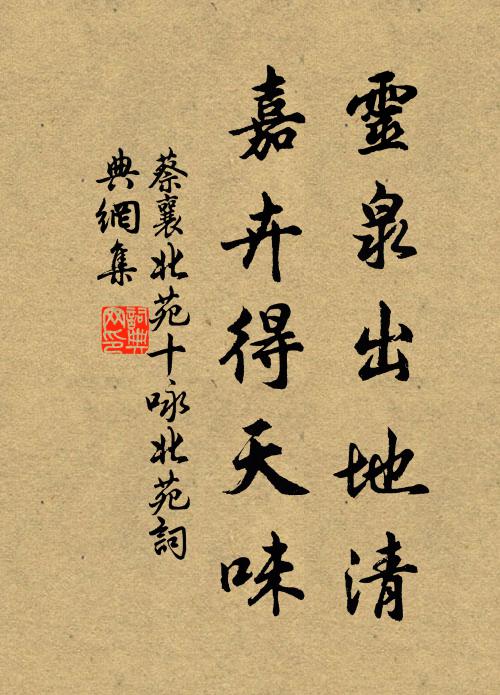 靈泉出地清
嘉卉得天味
蔡襄北苑十咏北苑詞
典網集
詞典網印